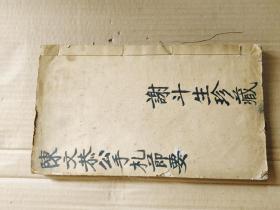 陳文恭公手札節要
謝斗生珍藏